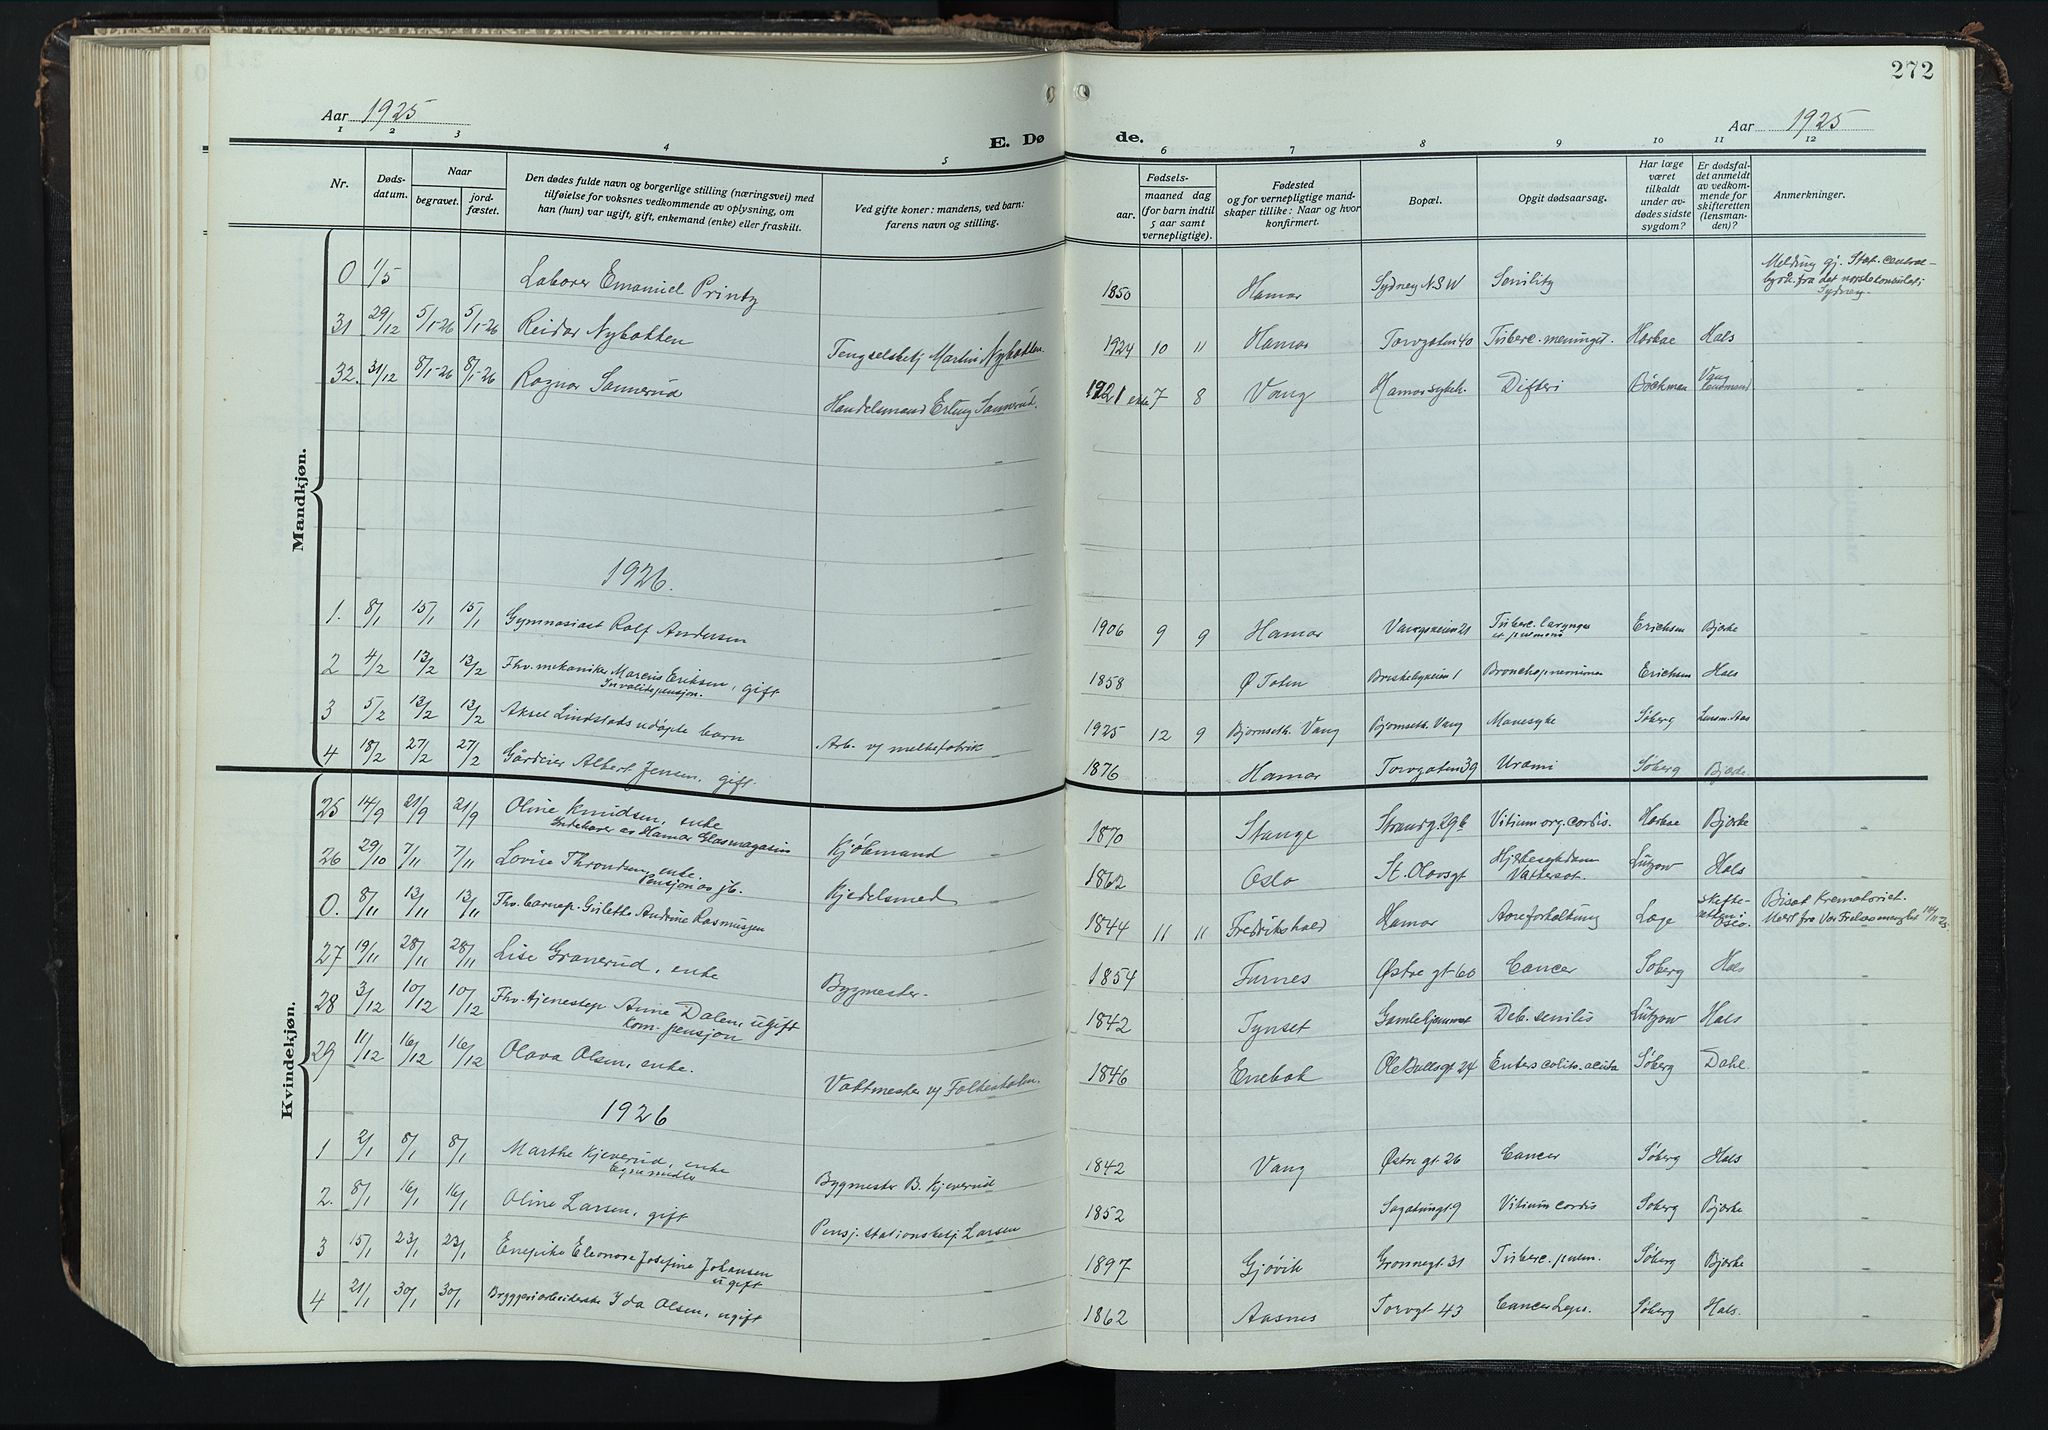 272
Aar 1925
E. Dø
de.
Aar 1925
1 2 3 4 5 6 7 8 9 10 11 12
Nr.
Døds-
datum.
Naar
begravet.
jord-
fæstet.
Den dødes fulde navn og borgerlige stilling (næringsvei) med
tilføielse for voksnes vedkommende av oplysning, om
han (hun) var ugift, gift, enkemand (enke) eller fraskilt.
Ved gifte koner: mandens, ved barn:
farens navn og stilling.
Fødsels-
aar.
maaned
dag
(for barn indtil
5 aar samt
vernepligtige).
Fødested
og for vernepligtige mand-
skaper tillike: Naar og hvor
konfirmert.
Bopæl.
Opgit dødsaarsag.
Har læge
været
tilkaldt
under av-
dødes sidste
sygdom?
Er dødsfal-
det anmeldt
av vedkom-
mende for
skifteretten
(lensman-
den)?
Anmerkninger.
Mandkjøn.
0 1/5 Laborer Emanuel Printz 1850 Hamar Sydney N.S.W Senility Meldning gj. Stat. central-
byrå fra det norske konsulat i
Sydney.
31 29/12 5/1-26 5/1-26 Reidar Nybakken Fengselsbetj Martin Nybakken 1924 10 11 Hamar Torvgaten 40 Tuberc. meningit. Harbae Hals
32. 31/12 8/1-26 8/1-26 Ragnar Sannerud Handelsmand Erling Sannerud. 1921 7 8 Vang Hamar sykeh. Difteri Bøckman Vang
lensmand
1926.
1. 8/1 15/1 15/1 Gymnasiast Rolf Andersen 1906 9 9 Hamar Vangsveien 21 Tuberc. larynges
et pulmonu Erichsen Bjerke
2 4/2 13/2 13/2 Fhv. mekaniker Marcus Eriksen, gift
Invalidepensjon. 1858 Ø Toten Briskebyveien 1 Bronchopneumonia Erichsen Hals
3 5/2 13/2 13/2 Aksel Lindstads udøpte barn Arb. v/ melkefabrik 1925 12 9 Bjørnseth. Vang Bjørnseth. Vang Mavesyke Søberg Lensm. Aas
4 18/2 27/2 27/2 Gårdeier Albert Jensen, gift. 1876 Hamar Torvgaten 39 Urami Søberg Bjerke
Kvindekjøn.
25 14/9 21/9 21/9 Oline Knudsen, enke
Indehaver av Hamar Glasmagasin Kjøbmand 1870 Stange Strandg. 29b Vitium org. cordis. Harbae Bjerke
26 29/10 7/11 7/11 Lovise Throndsen, enke.
Pensjon av jb. Kjedelsmed 1862 Oslo St. Olavsgt Hjertesykdom
Vattersot. Lützow Hals
0. 8/11 13/11 13/11 Fhv. barnep. Gulette Andrine Rasmussen 1844 11 11 Fredrikshald Hamar Aareforkalkning Læge Skifte-
retten i
Oslo. Bisat Krematoriet.
Meldt fra Vor Frelsers menighet
27 19/11 28/11 28/11 Lise Granerud, enke Bygmester. 1854 Furnes Østre gt 60 Cancer Søberg Hals
28 3/12 10/12 10/12 Fhv. tjenestep Anne Dalen, ugift
Kom. pensjon 1842 Tynset Gamlehjemmet Deb. senilis Lützow Hals
29 11/12 16/12 16/12 Olava Olsen, enke. Vaktmester v/ Folkeskolen. 1846 Enebak Ole Bullsgt 24 Entero colit. acuta Søberg Dahl
1926
1 2/1 8/1 8/1 Marthe Kjeverud, enke
Egne midler Bygmester B. Kjeverud 1842 Vang Østre gt. 26 Cancer Søberg Hals
2. 8/1 16/1 16/1 Oline Larsen, gift Pensj. stationsbetj. Larsen 1852 Sagatungt 9 Vitium cordis Søberg Bjerke
3 15/1 23/1 23/1 Enepike Eleonore Josefine Johansen
ugift 1897 Gjøvik Grønnegt. 31 Tuberc. pulm. Søberg Bjerke
4 21/1 30/1 30/1 Bryggeriarbeiderske Ida Olsen, ugift 1862 Aasnes Torvgt 43 Cancer Søberg Hals.